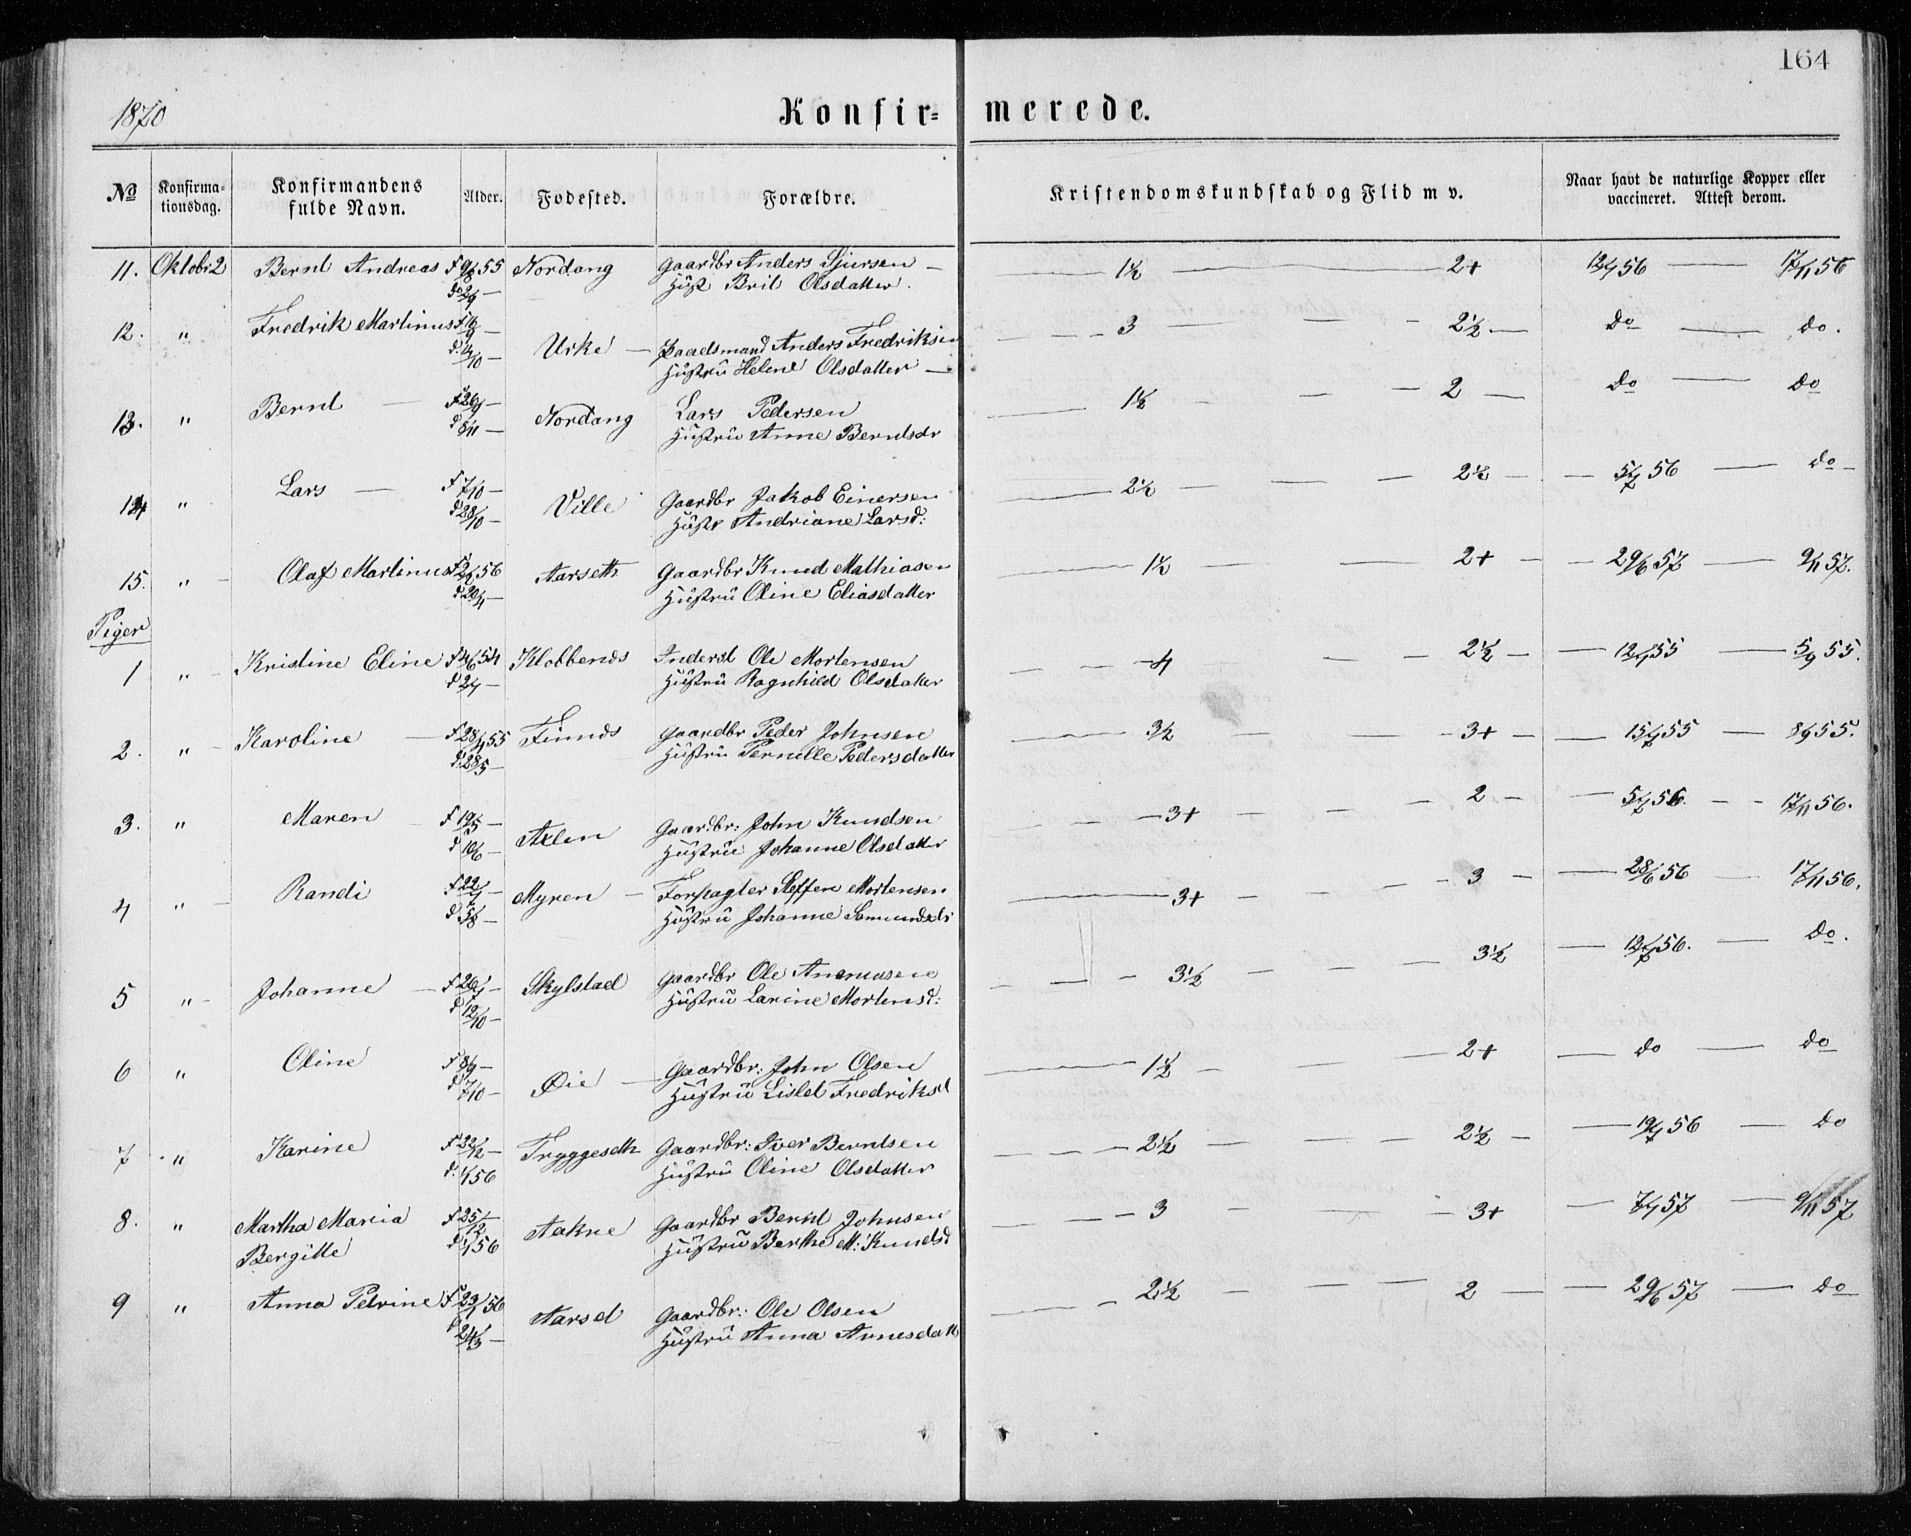 164
1870
Konfir=merede.
№ Konfirma=tionsdag. Konfirmandens fulde Navn. Alder. Fodested. Forældre. Kristendomskundskab og Flid m v. Naar havt de naturlige Kopper eller vaccineret. Attest derom.
11. Oktobr 2 Bernt Andreas F 9/8 55 Nordang Gaardbr Anders Sjursen — 1½ — 2+ 12/7 56 — 17/11 56
d 2/9 — Hust Brit Olsdatter.
12. " Fredrik Martinus F — Urke — Anders Fredriksen — 3 — 2½ — Do — do.
d. /10 — Hustru Helene Olsdatter —
13. " Bernt — F 26/9 — Nordang Lars Pedersen — 1½ — 2 — Do — Do
d 8/11 — Hustru Anne Berntsdr
14 " Lars — F 7/10 — Ville Gaardbr Jakob Einersen — 2½ — 2½ — 5/7 56 — do —
d 28/10 — Hustr Andriane Larsd:
15. " Olaf Martinus F 56 Aarseth Gaardbr Knud Mathiasen — 1½ — 2+ — 29/6 57 — 9/11 57.
d 20/4 — Hustru Oline Eliasdatter
Piger
1 " Kristine Eline F 4/6 54 Klobbends Inderst Ole Mortensen — 4 — 2½ — 12/7 55 — 5/9 55.
d 2/7 — Hustru Ragnhild Olsdatter
2. " Karoline — F 28/4 55 Finnds Gaardbr Peder Johnsen — 3½ — 3+ — 15/7 55 — 8/9 55.
d. 28/5 — Hustru Pernille Pedersdatter
3. " Maren F 19/5 — Axlen Gaardbr: John Knudsen — 3+ — 2 — 5/7 56. — 17/11 56.
d 10/6 — Hustru Johanne Olsdatter
4 " Randi F 22/7 — Myren — Forpagter Steffen Mortensen — 3+ — 3 — 28/6 56 — 17/11 56.
d 5/8 — Hustru Johanne Samundsdr
5 " Johanne — F — Skylstad Gaardbr Ole Anemusen — 3½ — 3½ — 12/7 56. — Do.
d 12/10 — Hustru Larine Mortensd:
6 " Oline F 8/9 — Øie — Gaardbr: John Olsen — 1½ — 2+ — do — Do
d 7/10 — Hustru Lislel Fredriksd
7 " Karine F 22/12 — Tryggeseth Gaardbr: Iver Berntsen — 2½ — 2½ — 19/7 56 — Do
d. 1/1 56 Hustru Oline Olsdatter
8. " Martha Maria F 25/12 — Aakne Gaardbr Bernt Johnsen — 3 — 3+ — 7/7 57 — 9/11 57
Bergitte d 1/1 56 Hustru Berthe M: Knudsd
9 " Anna Petrine F 23/1 56 Aarsd Gaardbr: Ole Olsen — 2½ — 2 — 29/6 57 — Do
24/3 — Hustru Anna Arnesdatt